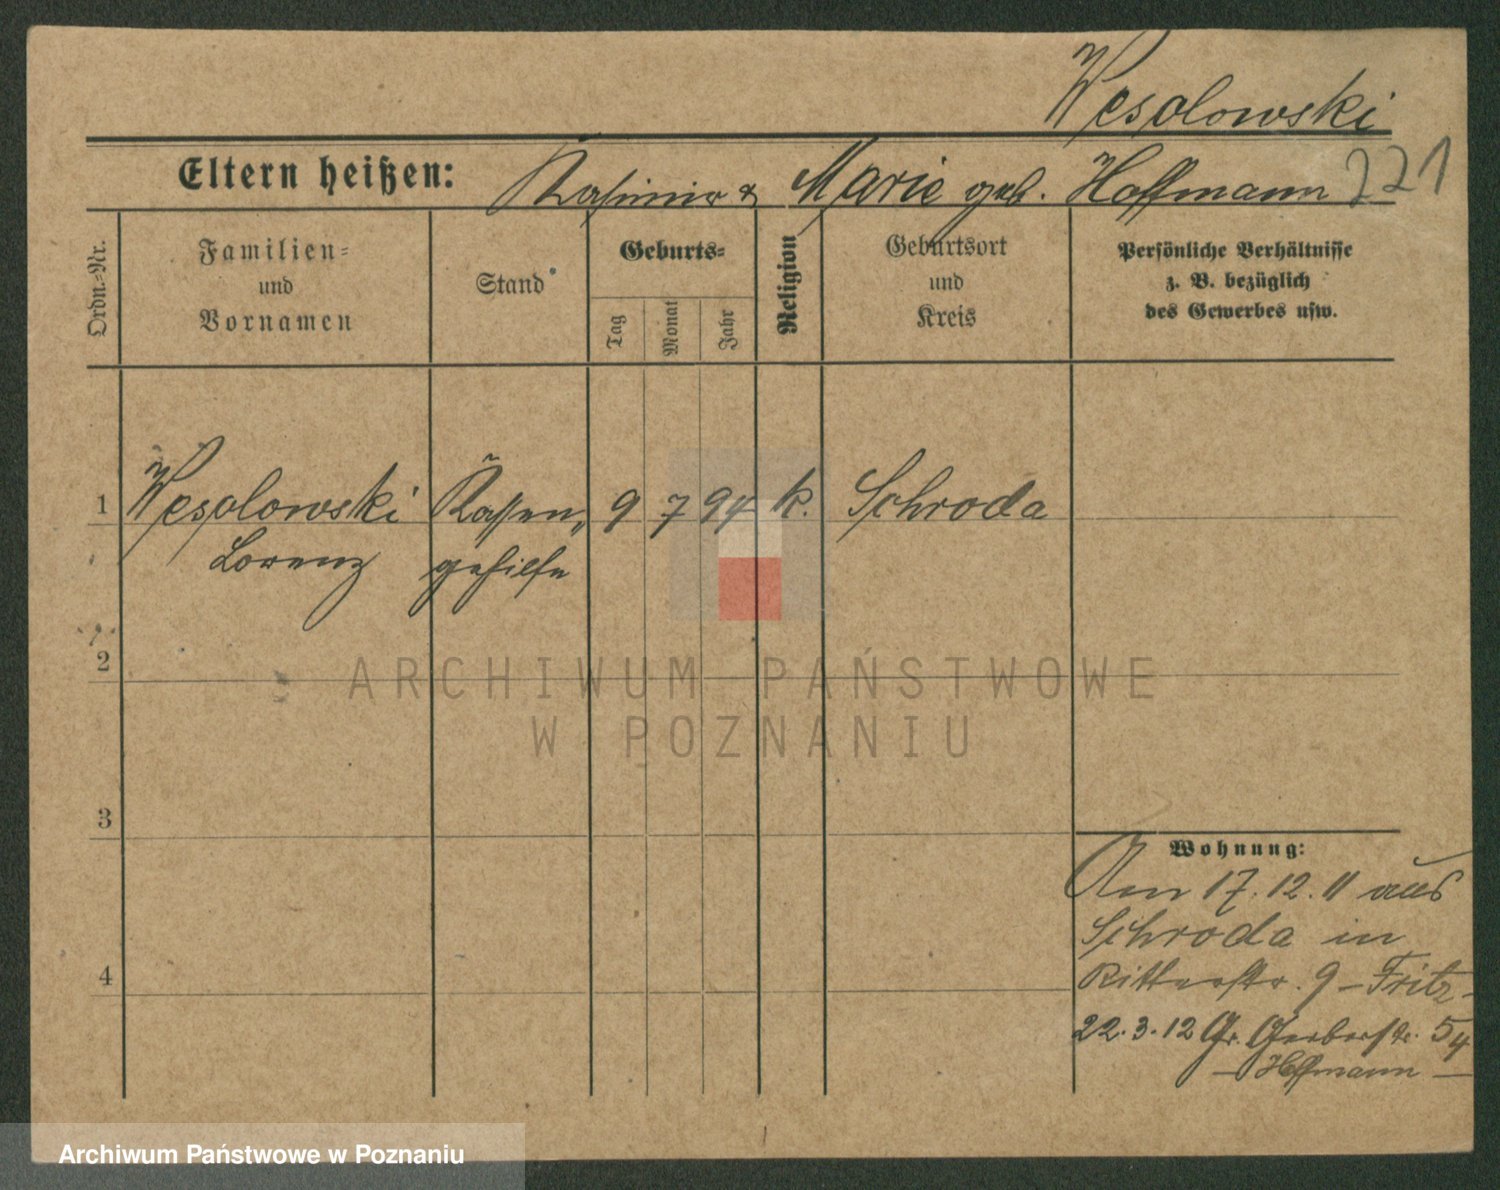 Wesolowski
Eltern heißen: Kasimir & Marie geb. Hoffmann 221
Ordn.-Nr.
Familien-
und
Vornamen
Stand
Geburts-
Tag
Monat
Jahr
Religion
Geburtsort
und
Kreis
Persönliche Verhältnisse
z. B. bezüglich
des Gewerbes usw.
1 Wesolowski Kassen„ 9 7 94 k. Schroda
Lorenz gehilfe
2
ARCHIWUM PAŃSTWOWE
W POZNANIU
3
Wohnung:
Am 17.12.11 aus
Schroda in
4
Ritterstr. 9 – Fritz –
22.3.12 Gr. Gerberstr. 54
– Hoffmann –
Archiwum Państwowe w Poznaniu